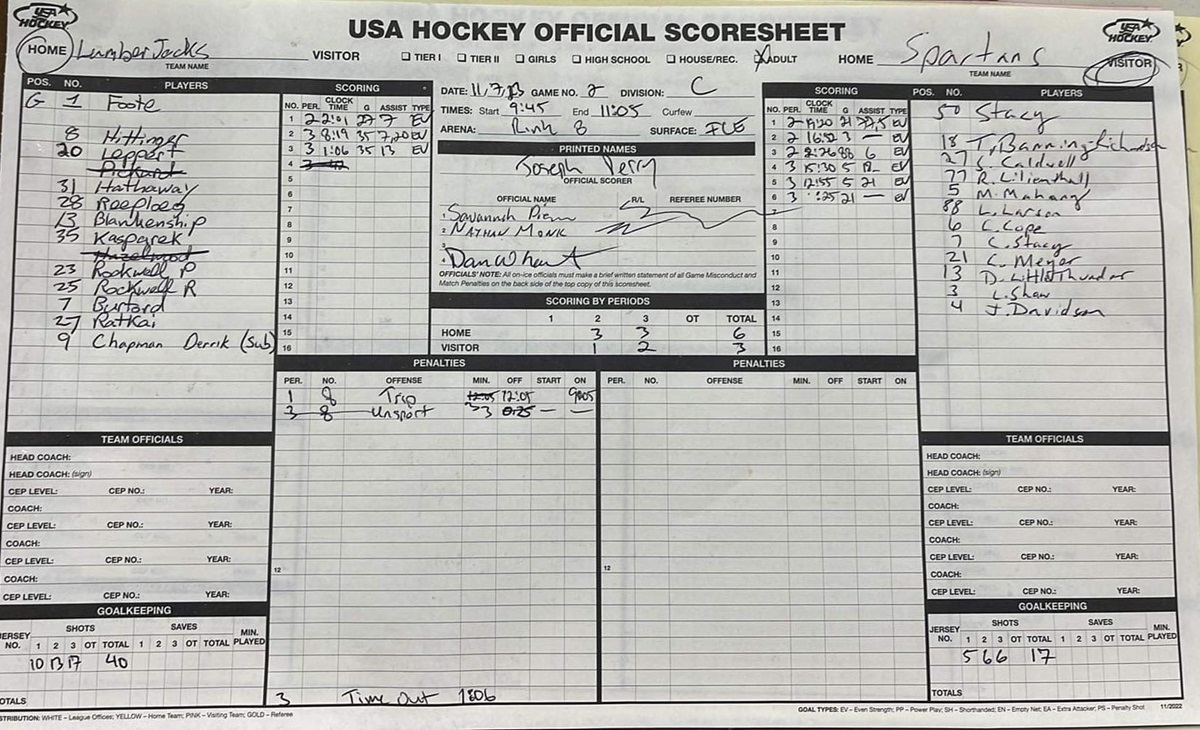 USA HOCKEY
USA HOCKEY OFFICIAL SCORESHEET
USA HOCKEY
HOME LumberJacks VISITOR
TEAM NAME
☐ TIER I ☐ TIER II ☐ GIRLS ☐ HIGH SCHOOL ☐ HOUSE/REC. ☒ ADULT
HOME Spartans VISITOR
TEAM NAME
POS. NO. PLAYERS
G 1 Foote
8 Hittinger
20 Leppert
Pickard
31 Hathaway
28 Roeploeg
13 Blankenship
35 Kasparek
Hazelwood
23 Rockwell P
25 Rockwell R
7 Burtard
27 Ratkai
9 Chapman Derrik (Sub)
SCORING
NO. PER. CLOCK TIME G ASSIST TYPE
1 2 2:01 27 7 EV
2 3 8:19 35 7,20 EV
3 3 1:06 35 13 EV
4
5
6
7
8
9
10
11
12
13
14
15
16
DATE: 11,7, GAME NO. 2 DIVISION: C
TIMES: Start 9:45 End 11:05 Curfew
ARENA: Rink B SURFACE: ICE
PRINTED NAMES
Joseph Perry
OFFICIAL SCORER
OFFICIAL NAME R/L REFEREE NUMBER
1. Savannah
2. NATHAN MONK
3.
4. Dan
OFFICIALS' NOTE: All on-ice officials must make a brief written statement of all Game Misconduct and
Match Penalties on the back side of the top copy of this scoresheet.
SCORING BY PERIODS
1 2 3 OT TOTAL
HOME 3 3 6
VISITOR 1 2 3
SCORING
NO. PER. CLOCK TIME G ASSIST TYPE
1 2 19:20 21 EV
2 2 16:52 3 — EV
3 2 2:26 88 6 EV
4 3 15:30 5 EV
5 3 12:55 5 21 EV
6 3 :25 21 — EV
7
8
9
10
11
12
13
14
15
16
POS. NO. PLAYERS
50 Stacy
18 T. Banning-Richardson
27 C. Caldwell
77 R. Lilienthall
5 M. Mahany
88 L. Larson
6 C. Cope
7 C. Stacy
21 C. Meyer
13 D. LittleThunder
3 L. Shaw
4 J. Davidson
PENALTIES
PER. NO. OFFENSE MIN. OFF START ON
1 8 Trip 12:05 12:05
3 8 Unsport 3
12
3 Time Out 1806
PENALTIES
PER. NO. OFFENSE MIN. OFF START ON
12
TEAM OFFICIALS
HEAD COACH:
HEAD COACH: (sign)
CEP LEVEL: CEP NO.: YEAR:
COACH:
CEP LEVEL: CEP NO.: YEAR:
COACH:
CEP LEVEL: CEP NO.: YEAR:
COACH:
CEP LEVEL: CEP NO.: YEAR:
GOALKEEPING
JERSEY NO. SHOTS 1 2 3 OT TOTAL SAVES 1 2 3 OT TOTAL MIN. PLAYED
10 13 17 40
TOTALS
TEAM OFFICIALS
HEAD COACH:
HEAD COACH: (sign)
CEP LEVEL: CEP NO.: YEAR:
COACH:
CEP LEVEL: CEP NO.: YEAR:
COACH:
CEP LEVEL: CEP NO.: YEAR:
COACH:
CEP LEVEL: CEP NO.: YEAR:
GOALKEEPING
JERSEY NO. SHOTS 1 2 3 OT TOTAL SAVES 1 2 3 OT TOTAL MIN. PLAYED
5 6 6 17
TOTALS
DISTRIBUTION: WHITE – League Offices; YELLOW – Home Team; PINK – Visiting Team; GOLD – Referee
GOAL TYPES: EV – Even Strength; PP – Power Play; SH – Shorthanded; EN – Empty Net; EA – Extra Attacker; PS – Penalty Shot 11/2022